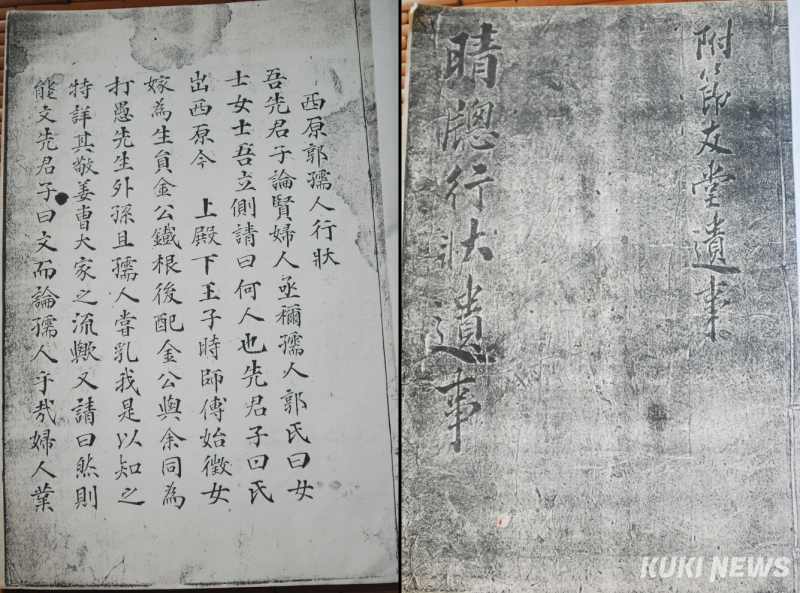 西原郭孺人行狀
吾先君子論賢婦人亟稱孺人郭氏曰女
士女士吾立側請曰何人也先君子曰氏
出西原今 上殿下王子時師傅始徵女
嫁為生員金公鐵根後配金公與余同為
打愚先生外孫且孺人嘗乳我是以知之
特詳其敬姜曹大家之流歟又請曰然則
能文先君子曰文而論孺人乎哉婦人業
附節友堂遺事
晴牕行狀遺事
KUKI NEWS